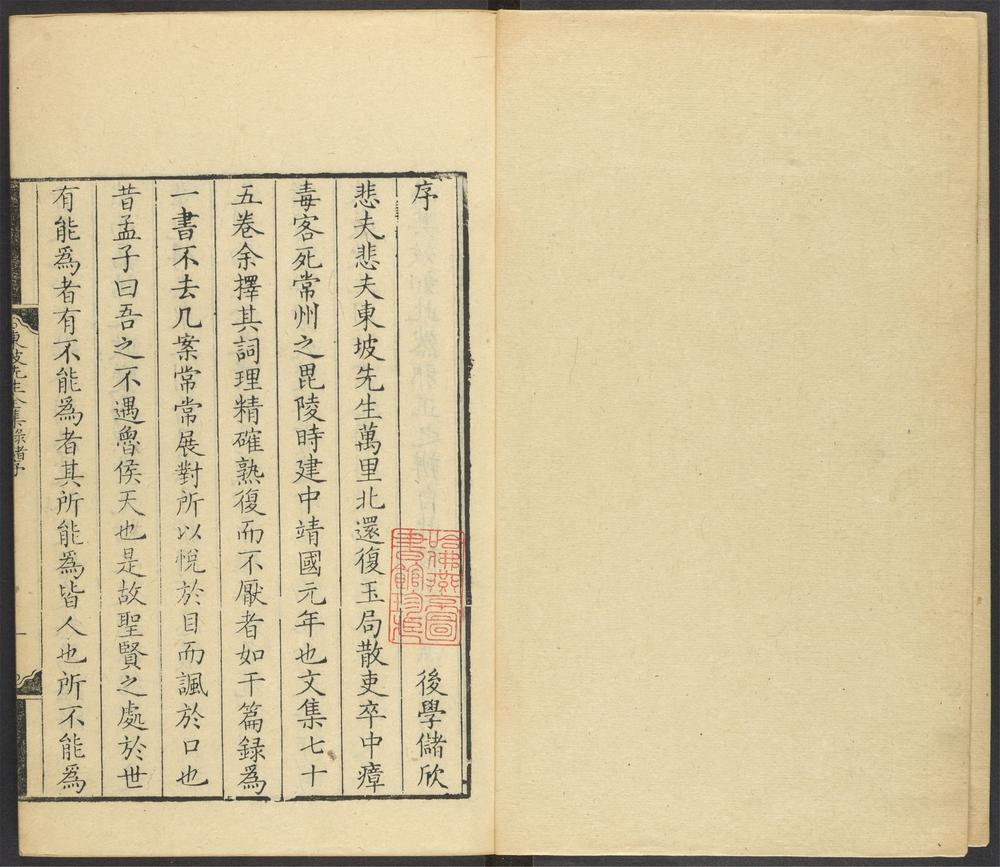 序　後學儲欣
悲夫悲夫東坡先生萬里北還復玉局散吏卒中瘴
毒客死常州之毘陵時建中靖國元年也文集七十
五卷余擇其詞理精確熟復而不厭者如干篇録爲
一書不去几案常常展對所以悅於目而諷於口也
昔孟子曰吾之不遇魯侯天也是故聖賢之處於世
有能爲者有不能爲者其所能爲皆人也所不能爲
東坡先生全集錄 序
一
哈佛燕京圖書館珍藏